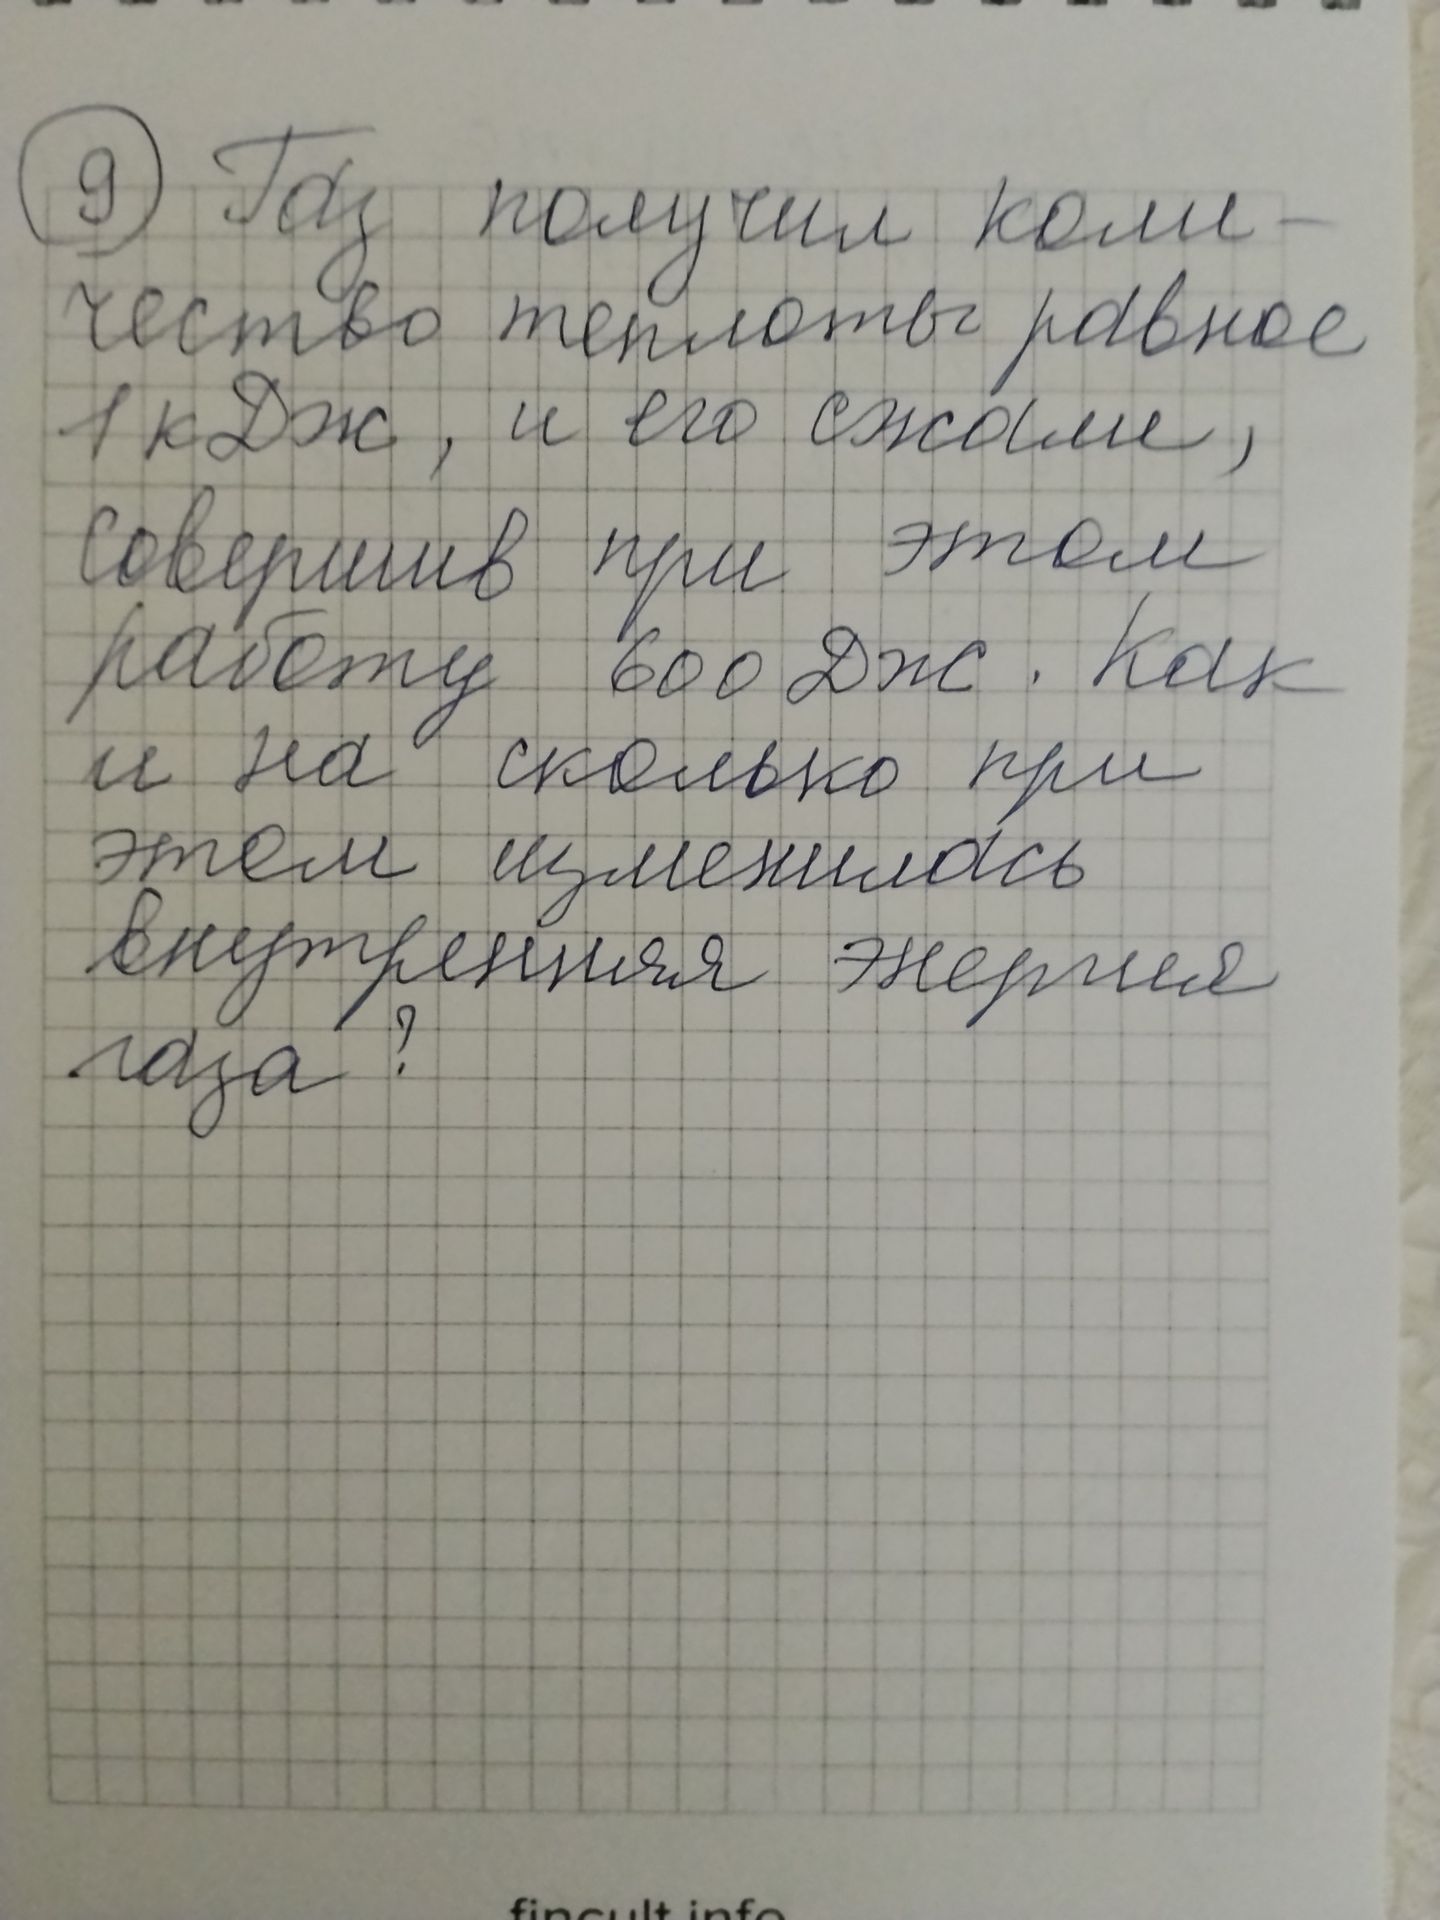 9 Газ получил коли-
чество теплоты равное
1 кДж, и его сжали,
совершив при этом
работу 600 Дж. Как
и на сколько при
этом изменилась
внутренняя энергия
газа?
fincult.info